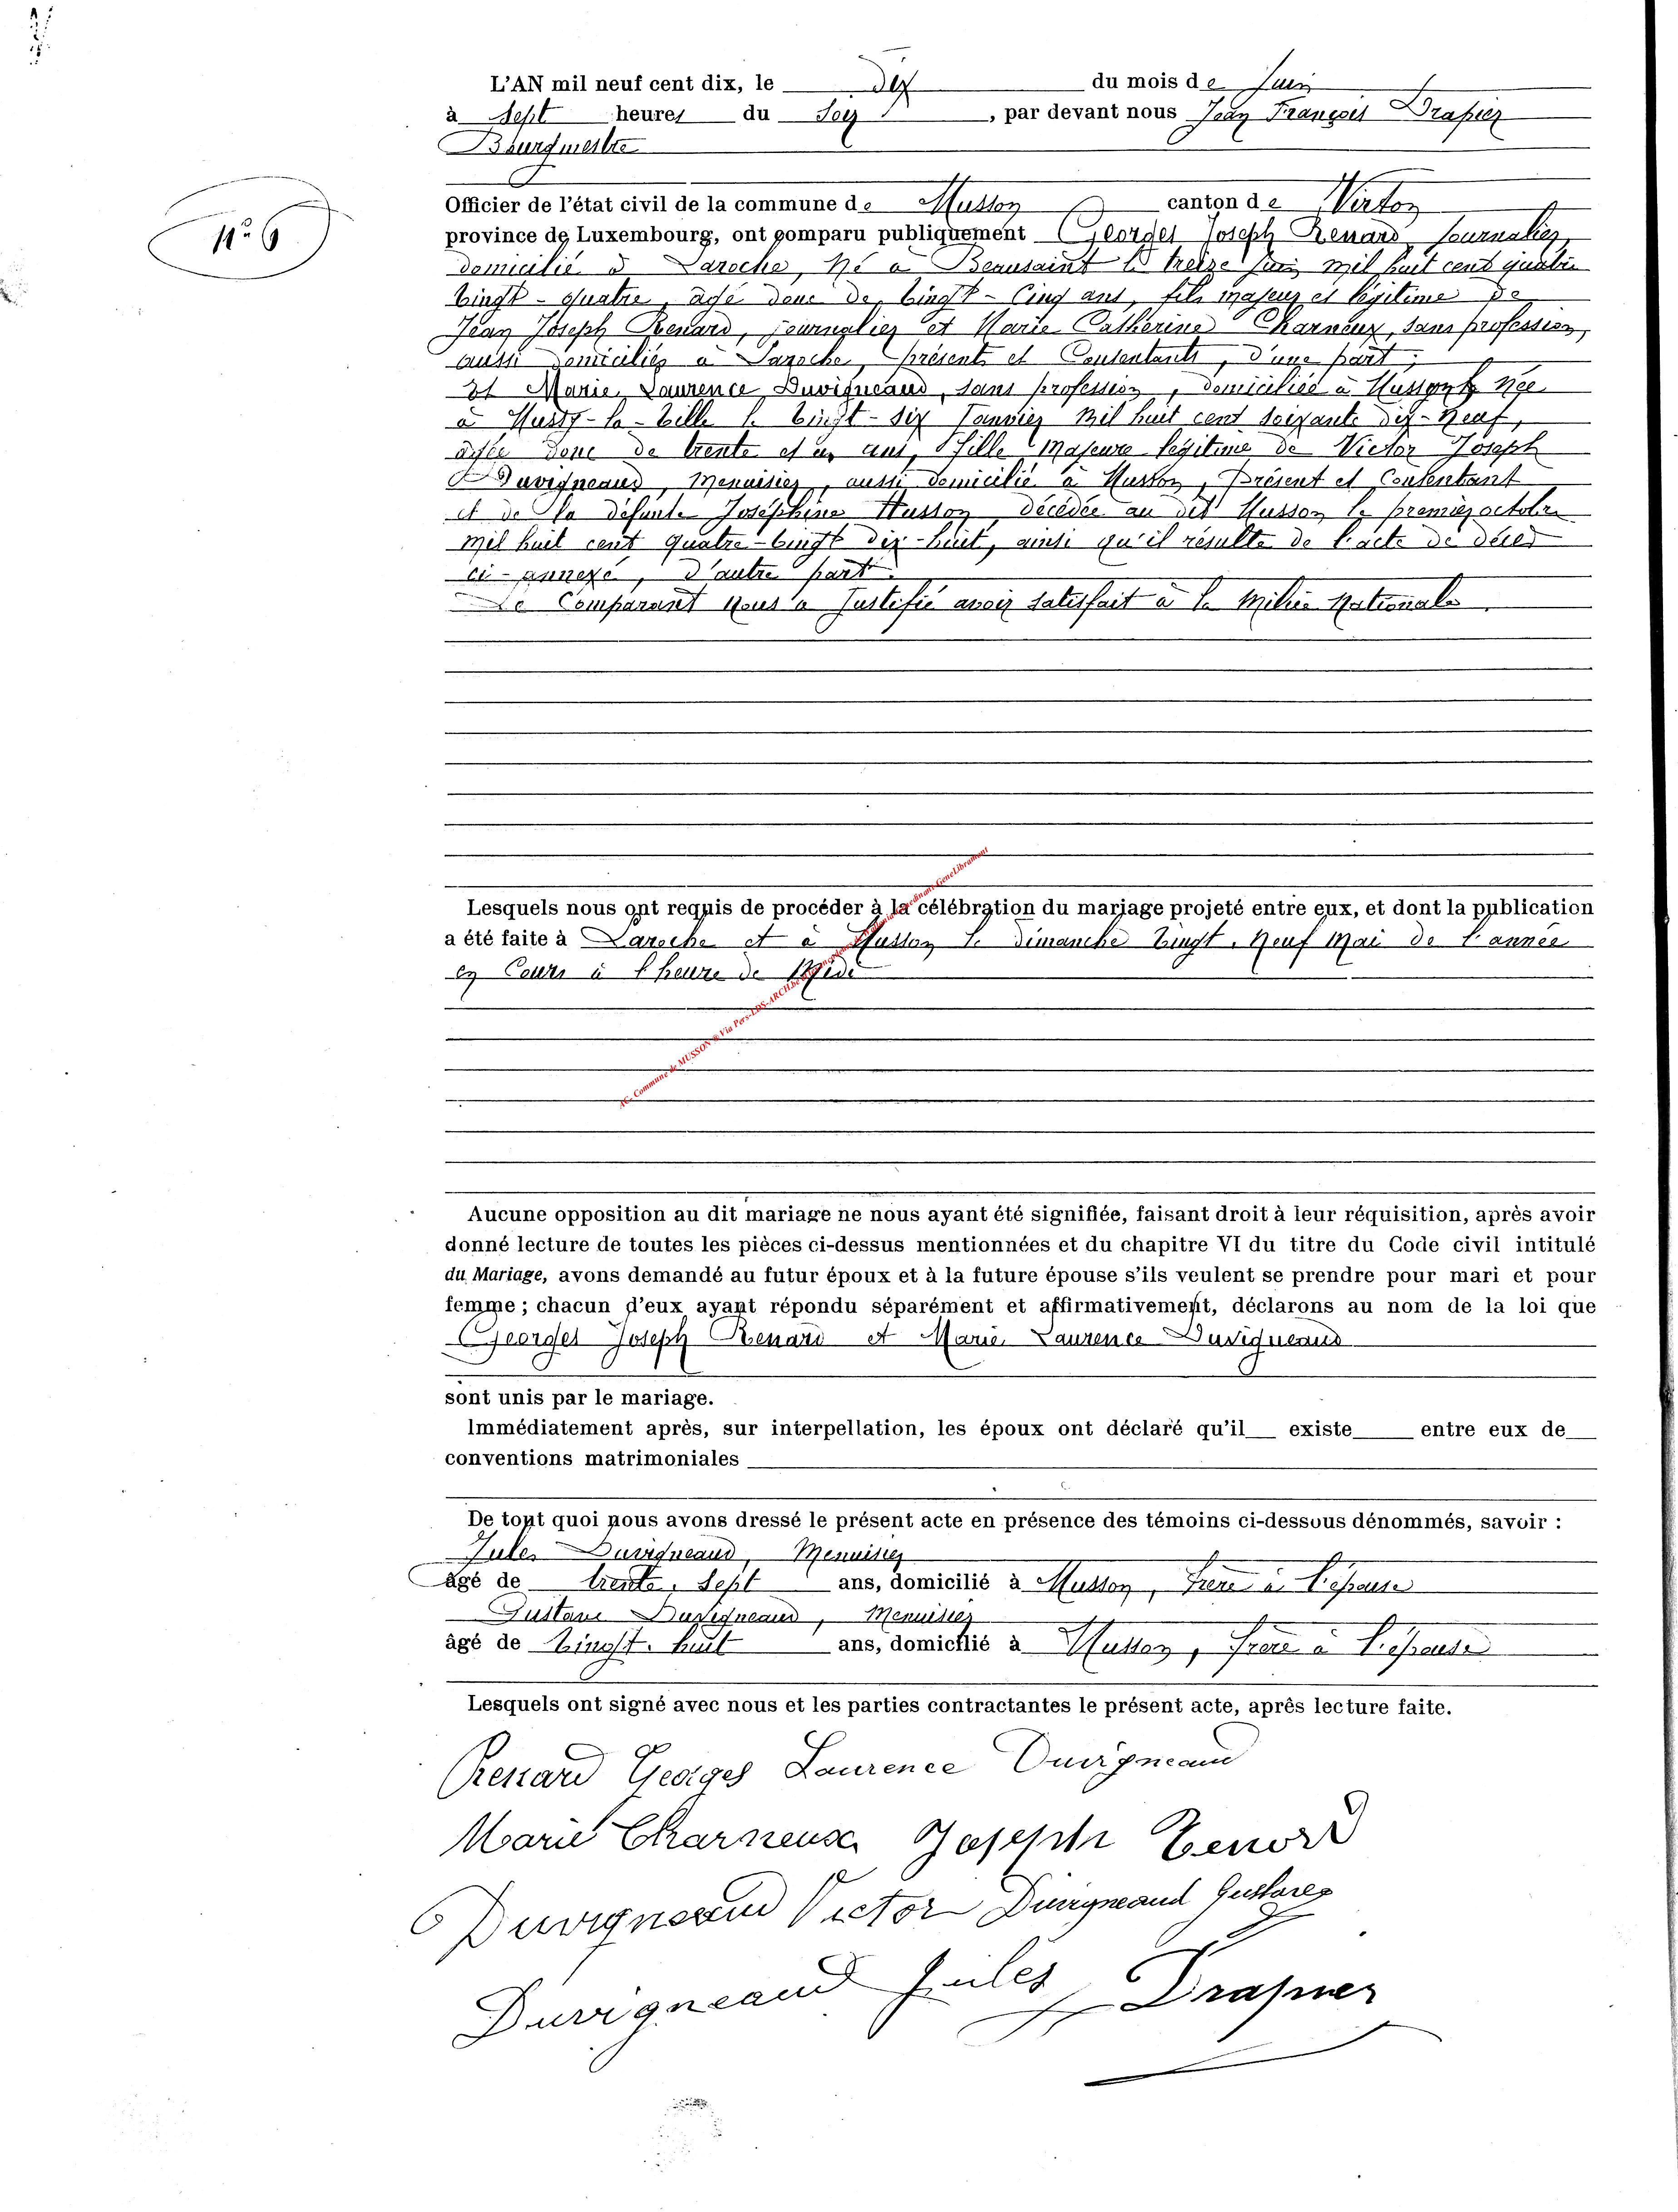 L'AN mil neuf cent dix, le dix du mois de Juin
à Sept heures du Soir, par devant nous Jean François Drapier
Bourgmestre
N° 6
Officier de l'état civil de la commune de Musson canton de Virton
province de Luxembourg, ont comparu publiquement Georges Joseph Renard, Journalier,
domicilié à Laroche, né à Beausaint le treize Juin mil huit cent quatre
vingt-quatre, âgé donc de vingt-cinq ans, fils majeur et légitime de
Jean Joseph Renard, journalier et Marie Catherine Charneux, sans profession,
aussi domiciliés à Laroche, présents et Consentants, d'une part;
Et Marie Laurence Duvigneaud, sans profession, domiciliée à Musson, Née
à Mussy-la-Ville le vingt-six Janvier mil huit cent soixante dix-neuf,
âgée donc de trente et un ans, fille Majeure légitime de Victor Joseph
Duvigneaud, Menuisier, aussi domicilié à Musson, Présent et Consentant
et de la défunte Joséphine Husson décédée au dit Musson le premier octobre
mil huit cent quatre-vingt dix-huit, ainsi qu'il résulte de l'acte de décès
ci-annexé, d'autre part.
Le Comparant nous a Justifié avoir satisfait à la Milice Nationale.
Lesquels nous ont requis de procéder à la célébration du mariage projeté entre eux, et dont la publication
a été faite à Laroche et à Musson le Dimanche Vingt-Neuf Mai de l'année
en Cours à l'heure de Midi
AC. Commune de MUSSON Via Pers-LDS-ARCH.be GeneLibramont
Aucune opposition au dit mariage ne nous ayant été signifiée, faisant droit à leur réquisition, après avoir
donné lecture de toutes les pièces ci-dessus mentionnées et du chapitre VI du titre du Code civil intitulé
du Mariage, avons demandé au futur époux et à la future épouse s'ils veulent se prendre pour mari et pour
femme ; chacun d'eux ayant répondu séparément et affirmativement, déclarons au nom de la loi que
Georges Joseph Renard et Marie Laurence Duvigneaud
sont unis par le mariage.
Immédiatement après, sur interpellation, les époux ont déclaré qu'il existe entre eux de
conventions matrimoniales
De tout quoi nous avons dressé le présent acte en présence des témoins ci-dessous dénommés, savoir :
Jules Duvigneaud, Menuisier
âgé de trente-sept ans, domicilié à Musson, frère à l'épouse
Gustave Duvigneaud, Menuisier
âgé de Vingt-huit ans, domicilié à Musson, frère à l'épouse
Lesquels ont signé avec nous et les parties contractantes le présent acte, après lecture faite.
Renard Georges Laurence Duvigneaud
Marie Charneux Joseph Renard
Duvigneaud Victor Duvigneaud Gustave
Duvigneaud Jules Drapier